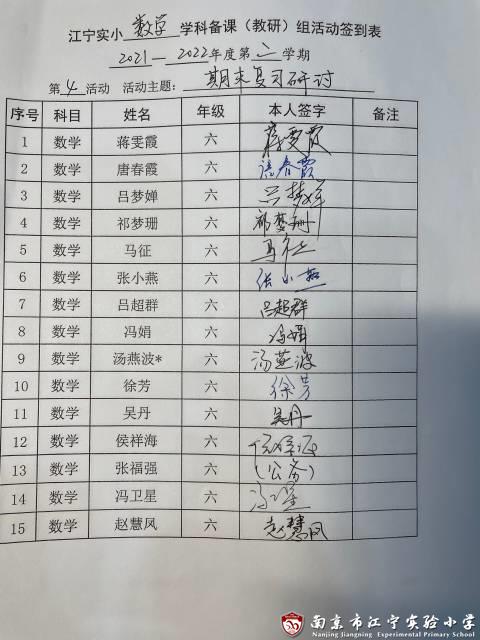 江宁实小 数学 学科备课（教研）组活动签到表
2021 — 2022 年度第 二 学期
第 4 活动 活动主题： 期末复习研讨
序号 科目 姓名 年级 本人签字 备注
1 数学 蒋雯霞 六 蒋雯霞
2 数学 唐春霞 六 唐春霞
3 数学 吕梦婵 六 吕梦婵
4 数学 祁梦珊 六 祁梦珊
5 数学 马征 六 马征
6 数学 张小燕 六 张小燕
7 数学 吕超群 六 吕超群
8 数学 冯娟 六 冯娟
9 数学 汤燕波* 六 汤燕波
10 数学 徐芳 六 徐芳
11 数学 吴丹 六 吴丹
12 数学 侯祥海 六 侯祥海
13 数学 张福强 六 （公务）
14 数学 冯卫星 六 冯卫星
15 数学 赵慧凤 六 赵慧凤
南京市江宁实验小学
Nanjing Jiangning Experimental Primary School